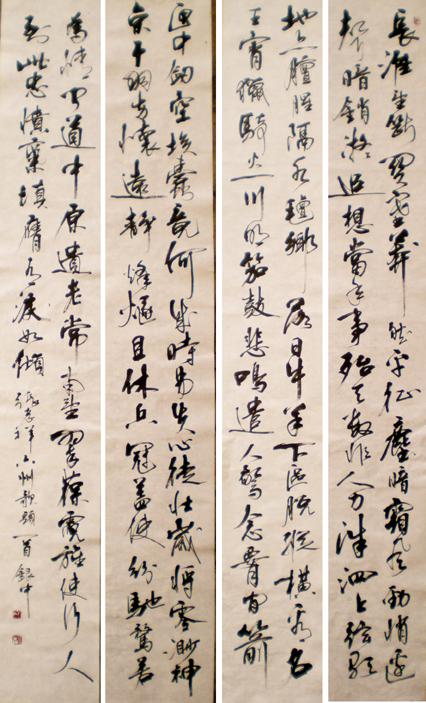 長淮望斷關塞莽然平征塵暗霜風勁悄邊
聲暗銷凝追想當年事殆天數非人力洙泗上絃歌
地亦膻腥隔水氈鄉落日牛羊下區脫縱橫看名
王宵獵騎火一川明笳鼓悲鳴遣人驚念腰間箭
匣中劍空埃蠹竟何成時易失心徒壯歲將零渺神
京干羽方懷遠靜烽燧且休兵冠蓋使紛馳騖若
為情聞道中原遺老常南望翠葆霓旌使行人
到此忠憤氣填膺有淚如傾 張孝祥六州歌頭一首 銀中